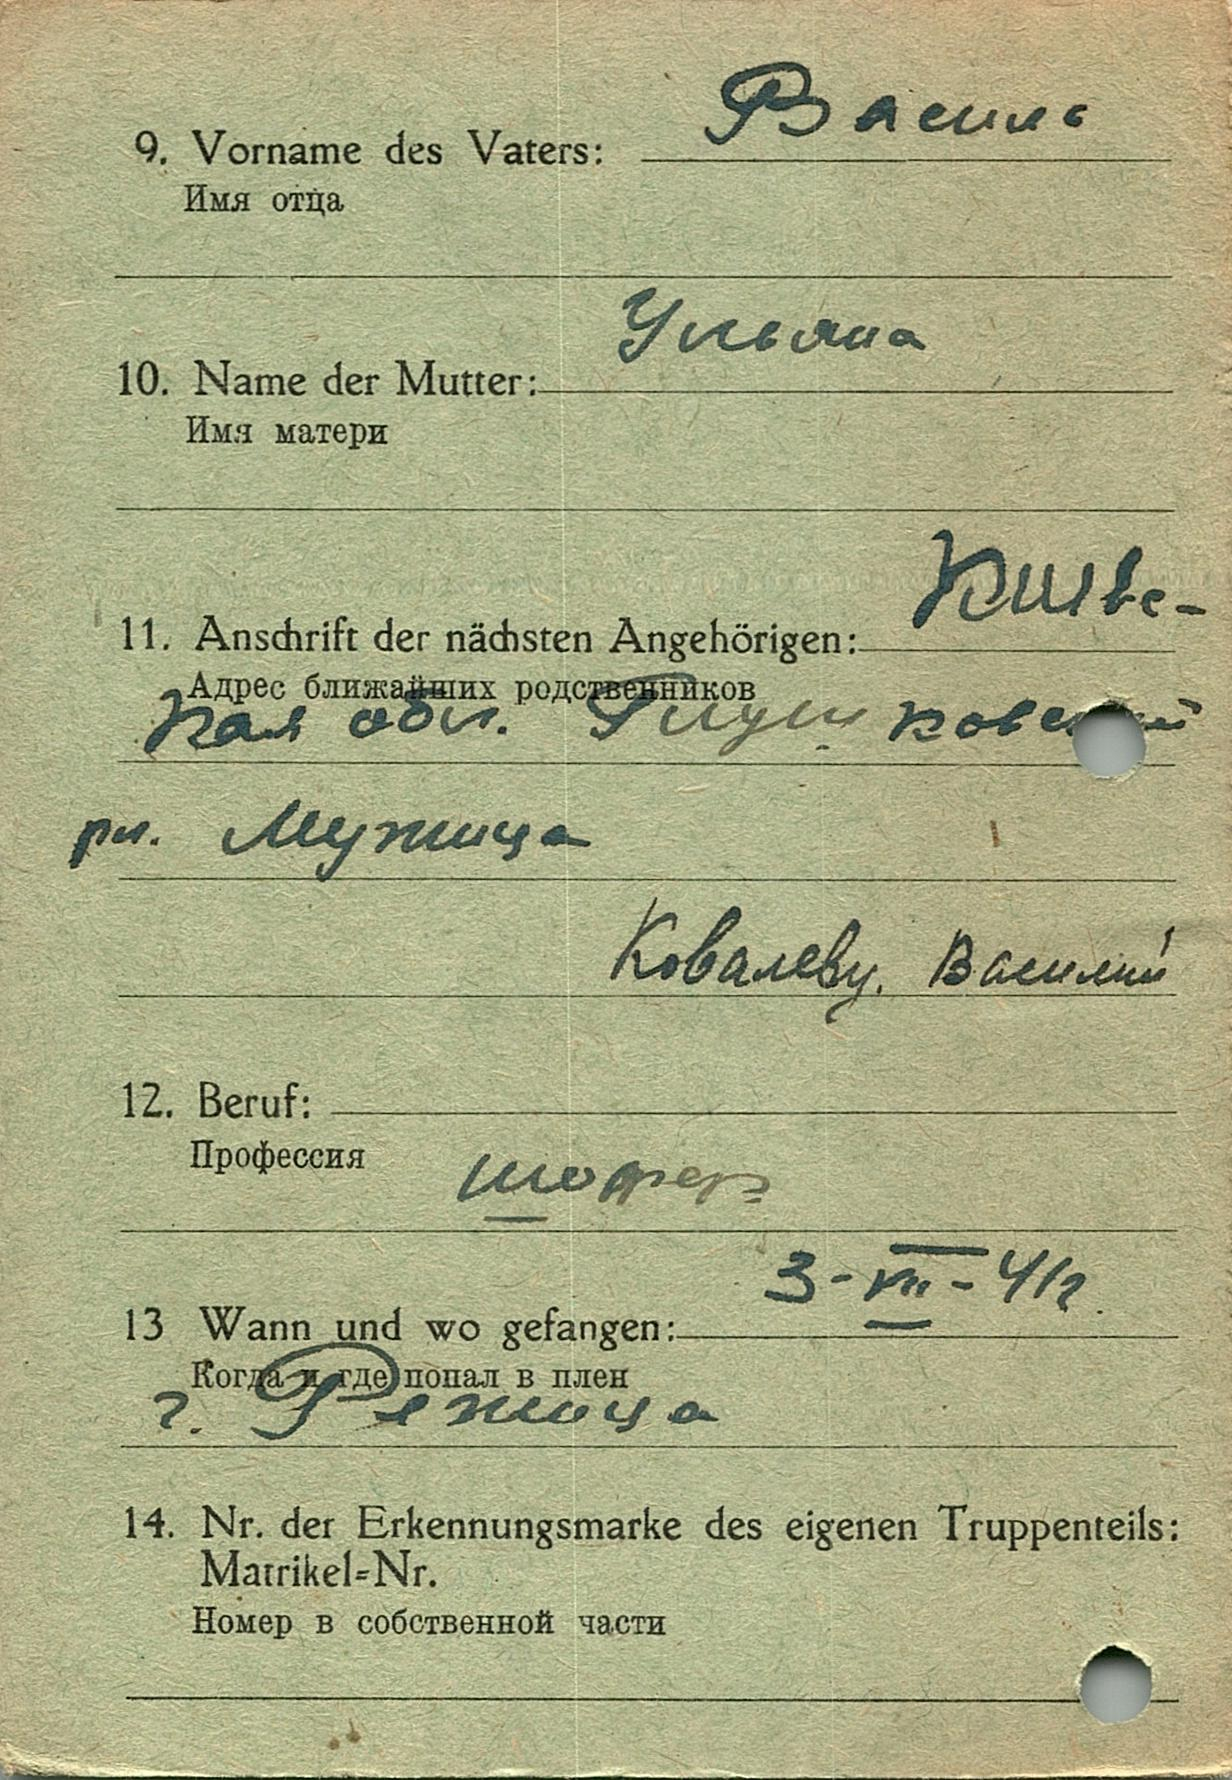 9. Vorname des Vaters: Василь
Имя отца
Ульяна
10. Name der Mutter:
Имя матери
Киеве-
11. Anschrift der nächsten Angehörigen:
Адрес ближайших родственников
кая обл.
рн. Мужица
Ковалеву. Василий
12. Beruf:
Профессия
шофер
3-VII-41г.
13 Wann und wo gefangen:
Когда и где попал в плен
г. Режица
14. Nr. der Erkennungsmarke des eigenen Truppenteils:
Matrikel=Nr.
Номер в собственной части